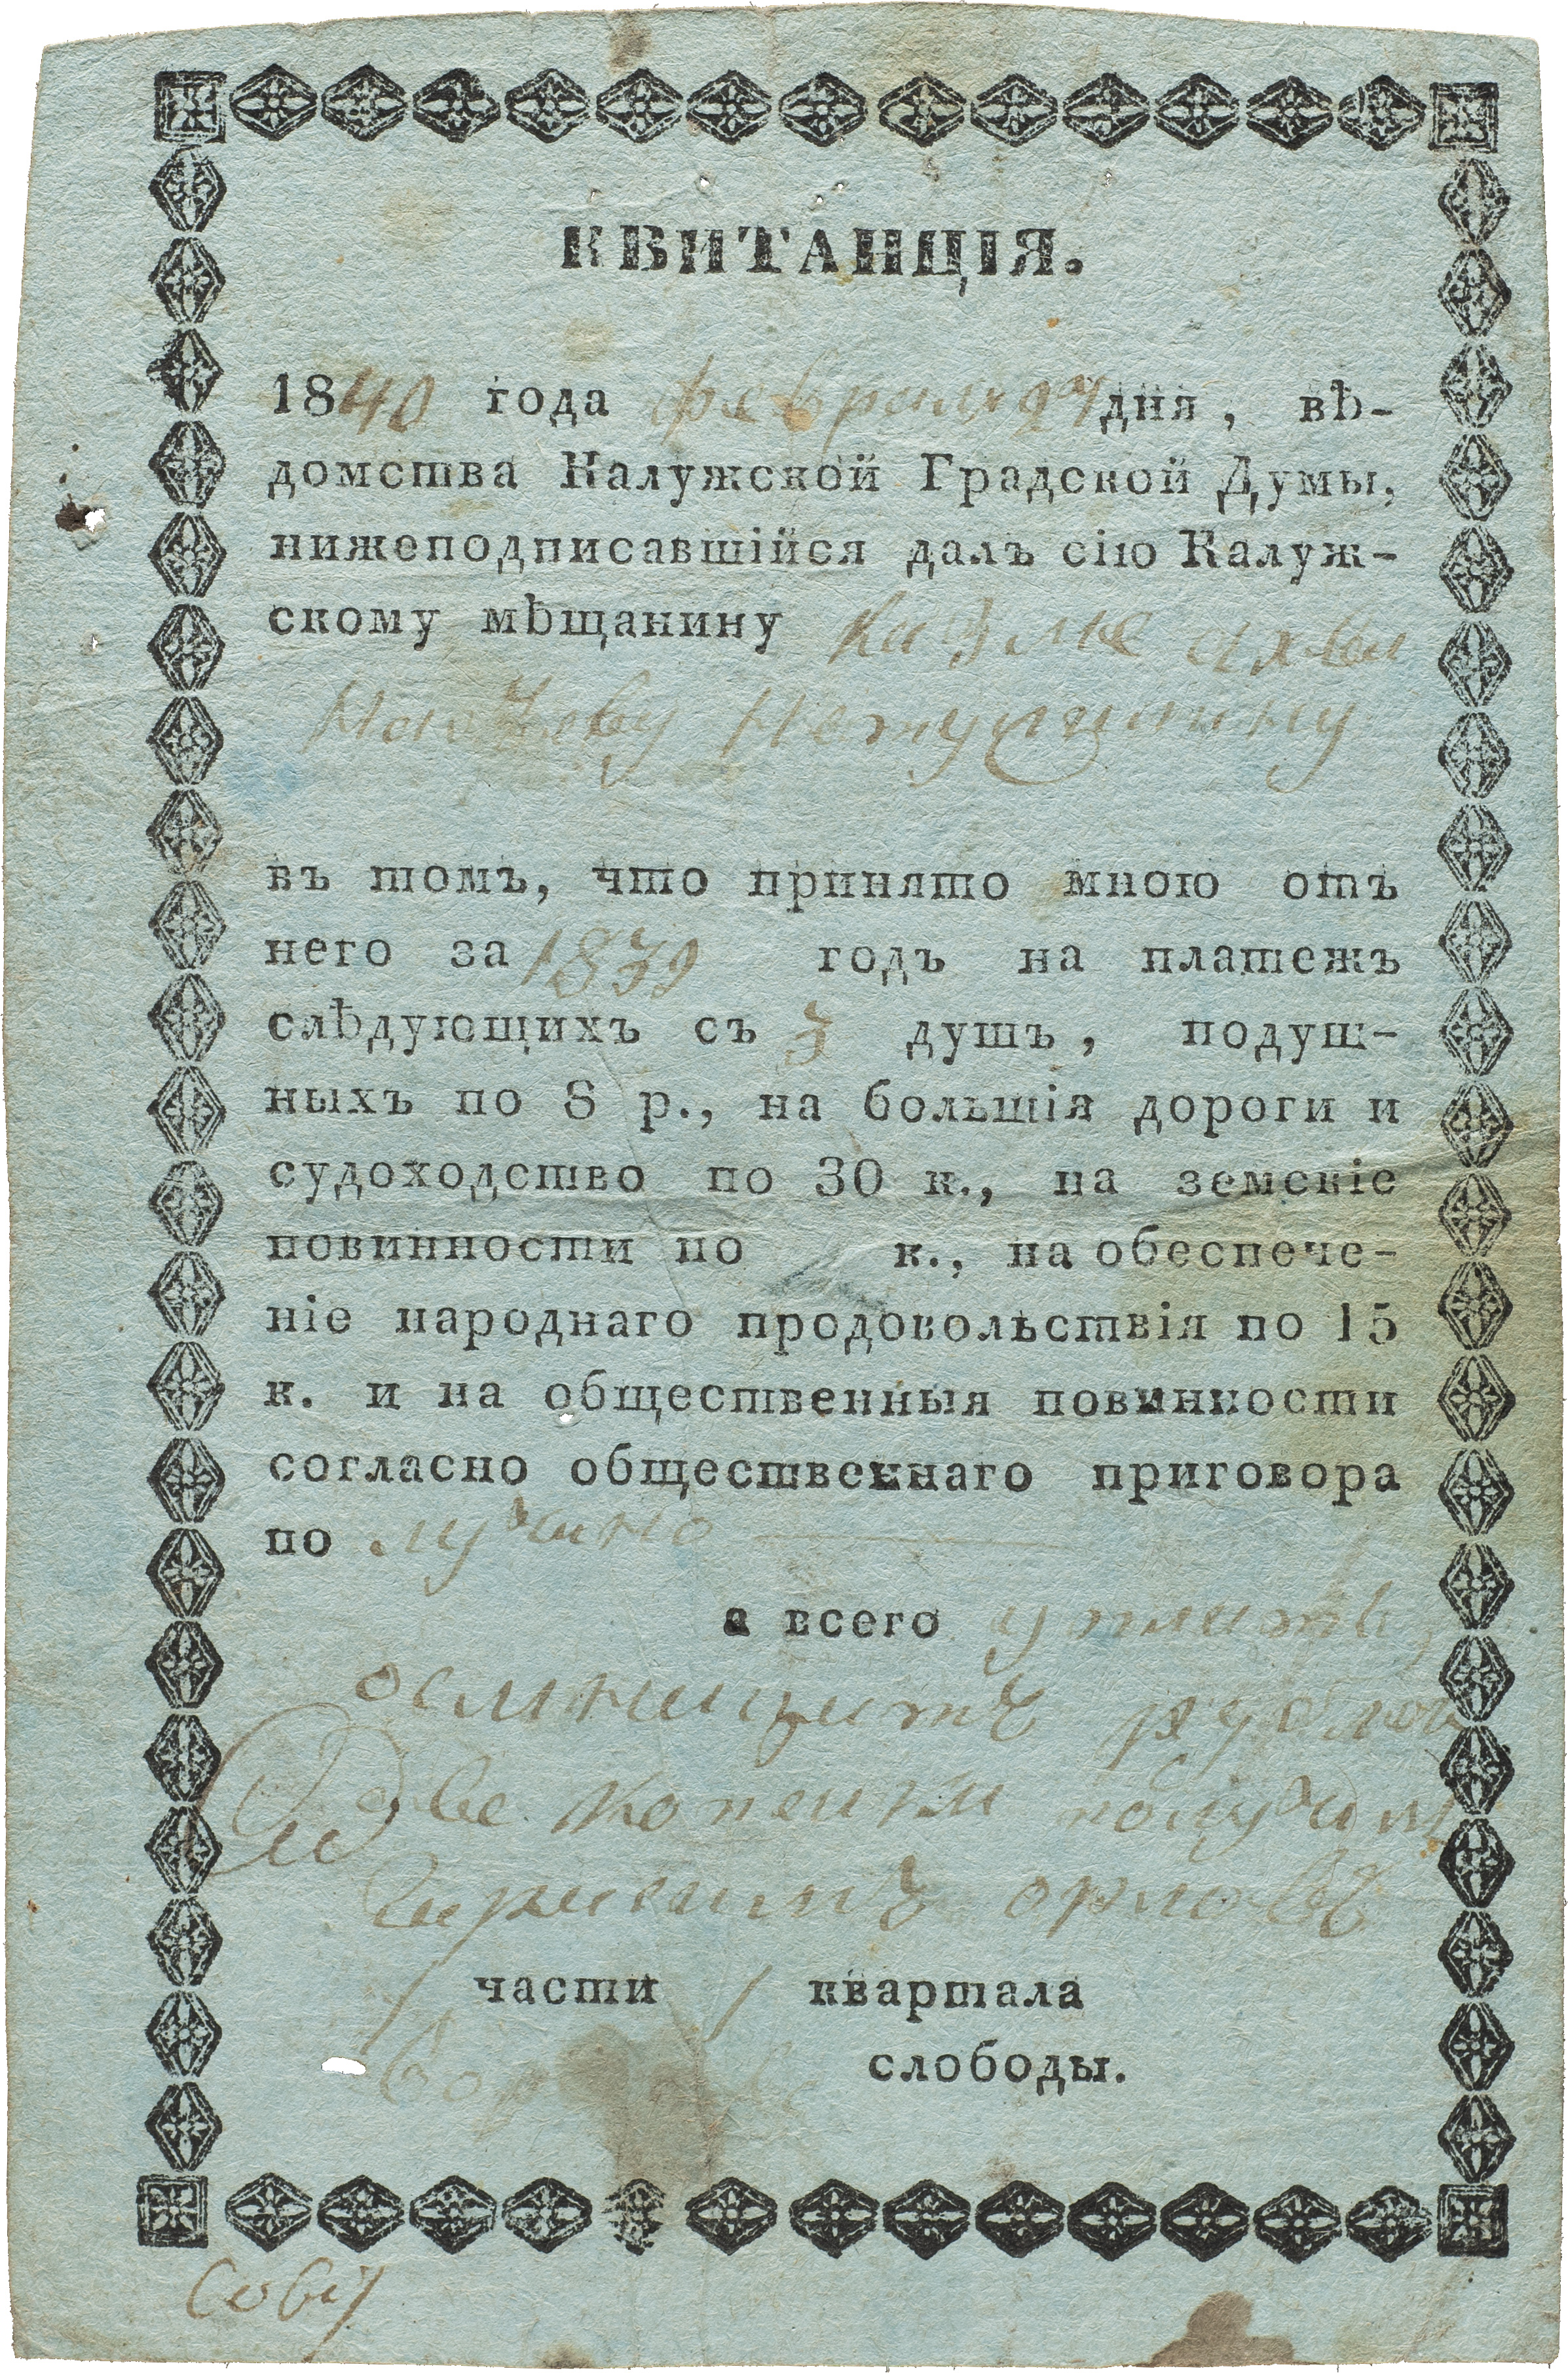 КВИТАНЦІЯ.
1840 года февраля 24 дня, вѣ-
домства Калужской Градской Думы,
нижеподписавшійся далъ сію Калуж-
скому мѣщанину
въ томъ, что принято мною отъ
него за 1839 годъ на платежъ
слѣдующихъ съ 3 душъ, подуш-
ныхъ по 8 р., на большія дороги и
судоходство по 30 к., на земскіе
повинности по к., на обеспече-
ніе народнаго продовольствія по 15
к. и на общественныя повинности
согласно общественнаго приговора
по
а всего
рублей
две копейки получилъ
орловъ
1 части 1 квартала
слободы.